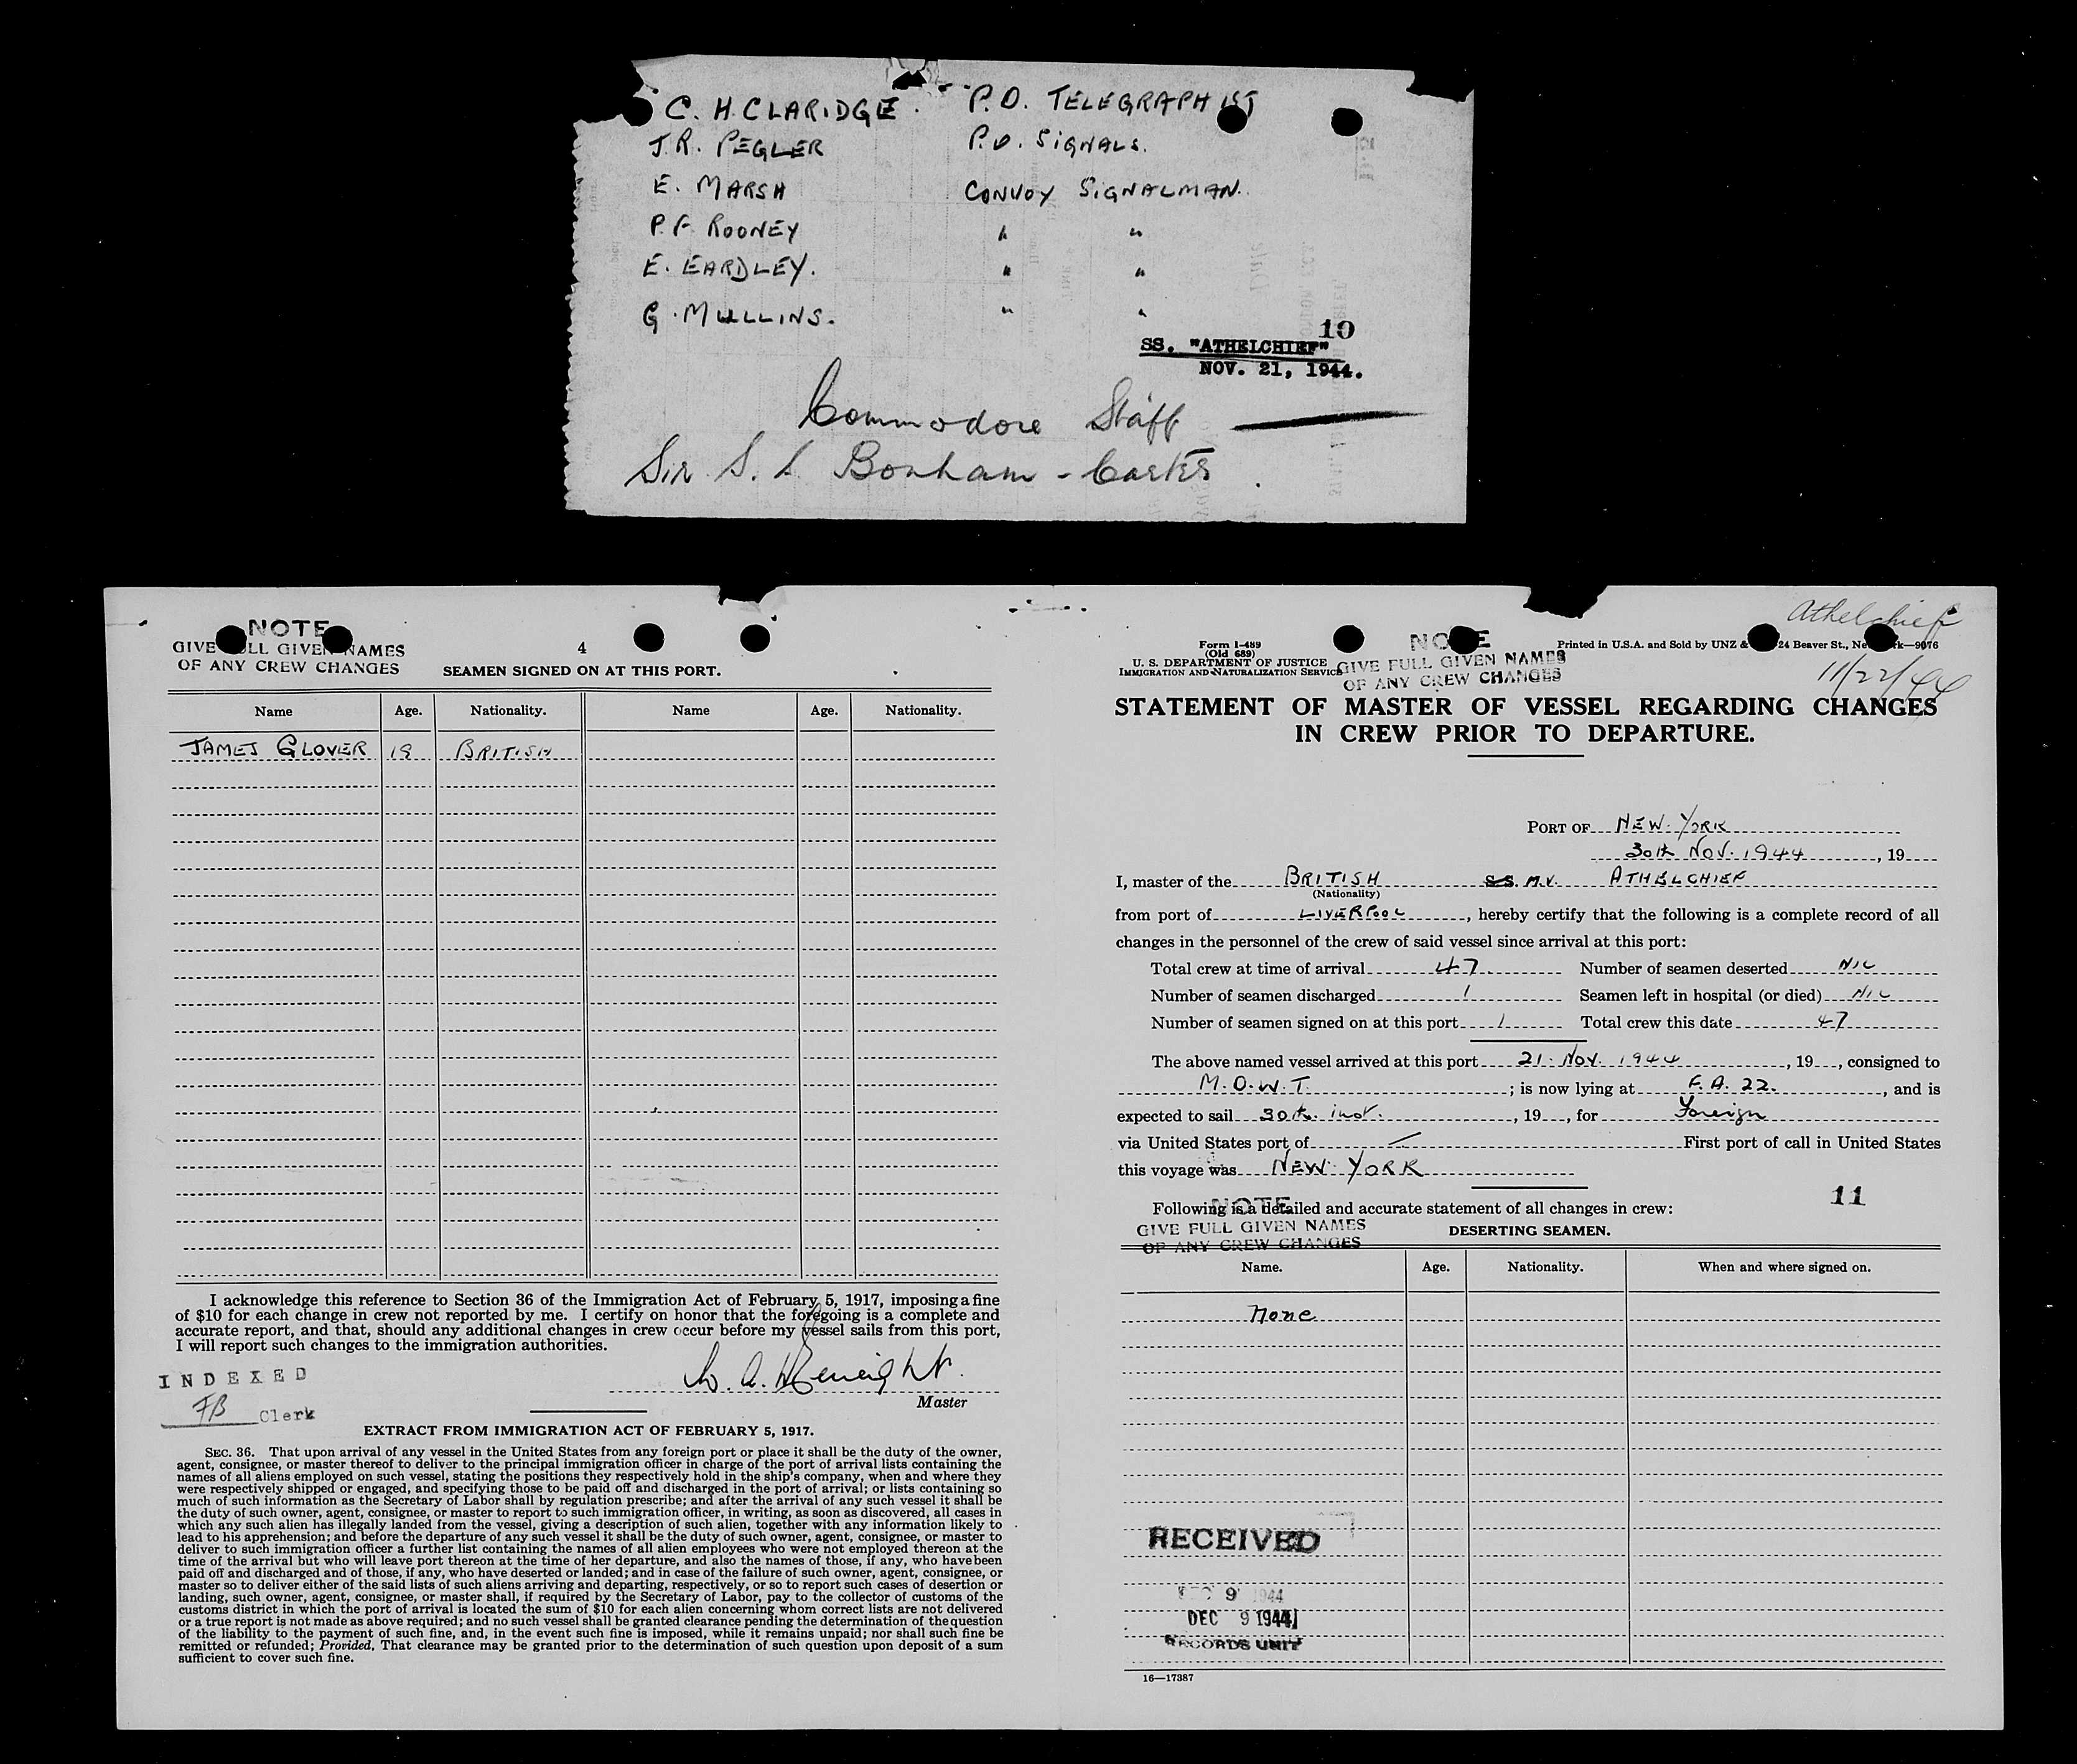 C. H. CLARIDGE. P.O. TELEGRAPHIST
J.R. PEGLER P.O. SIGNALS.
E. MARSH CONVOY SIGNALMAN.
P.F. ROONEY " "
E. EARDLEY. " "
G. MULLINS. " "
10
SS. "ATHELCHIEF"
NOV. 21, 1944.
Commodore Staff
Sir S. S. Bonham-Carter.
NOTE
GIVE FULL GIVEN NAMES
OF ANY CREW CHANGES
4
SEAMEN SIGNED ON AT THIS PORT.
Name Age. Nationality. Name Age. Nationality.
JAMES GLOVER 19 BRITISH
I acknowledge this reference to Section 36 of the Immigration Act of February 5, 1917, imposing a fine
of $10 for each change in crew not reported by me. I certify on honor that the foregoing is a complete and
accurate report, and that, should any additional changes in crew occur before my vessel sails from this port,
I will report such changes to the immigration authorities.
INDEXED
FB Clerk
Master
EXTRACT FROM IMMIGRATION ACT OF FEBRUARY 5, 1917.
SEC. 36. That upon arrival of any vessel in the United States from any foreign port or place it shall be the duty of the owner,
agent, consignee, or master thereof to deliver to the principal immigration officer in charge of the port of arrival lists containing the
names of all aliens employed on such vessel, stating the positions they respectively hold in the ship's company, when and where they
were respectively shipped or engaged, and specifying those to be paid off and discharged in the port of arrival; or lists containing so
much of such information as the Secretary of Labor shall by regulation prescribe; and after the arrival of any such vessel it shall be
the duty of such owner, agent, consignee, or master to report to such immigration officer, in writing, as soon as discovered, all cases in
which any such alien has illegally landed from the vessel, giving a description of such alien, together with any information likely to
lead to his apprehension; and before the departure of any such vessel it shall be the duty of such owner, agent, consignee, or master to
deliver to such immigration officer a further list containing the names of all alien employees who were not employed thereon at the
time of the arrival but who will leave port thereon at the time of her departure, and also the names of those, if any, who have been
paid off and discharged and of those, if any, who have deserted or landed; and in case of the failure of such owner, agent, consignee, or
master so to deliver either of the said lists of such aliens arriving and departing, respectively, or so to report such cases of desertion or
landing, such owner, agent, consignee, or master shall, if required by the Secretary of Labor, pay to the collector of customs of the
customs district in which the port of arrival is located the sum of $10 for each alien concerning whom correct lists are not delivered
or a true report is not made as above required; and no such vessel shall be granted clearance pending the determination of the question
of the liability to the payment of such fine, and, in the event such fine is imposed, while it remains unpaid; nor shall such fine be
remitted or refunded; Provided, That clearance may be granted prior to the determination of such question upon deposit of a sum
sufficient to cover such fine.
Athelchief
11/22/44
Form I-489
(Old 689)
U. S. DEPARTMENT OF JUSTICE
IMMIGRATION AND NATURALIZATION SERVICE
NOTE
GIVE FULL GIVEN NAMES
OF ANY CREW CHANGES
Printed in U.S.A. and Sold by UNZ & 24 Beaver St., New York—9076
STATEMENT OF MASTER OF VESSEL REGARDING CHANGES
IN CREW PRIOR TO DEPARTURE.
PORT OF NEW YORK
30th NOV. 1944, 19
I, master of the BRITISH SS. M.V. ATHELCHIEF
(Nationality)
from port of LIVERPOOL, hereby certify that the following is a complete record of all
changes in the personnel of the crew of said vessel since arrival at this port:
Total crew at time of arrival 47 Number of seamen deserted NIL
Number of seamen discharged 1 Seamen left in hospital (or died) NIL
Number of seamen signed on at this port 1 Total crew this date 47
The above named vessel arrived at this port 21. Nov. 1944, 19, consigned to
M.O.W.T.; is now lying at F.A. 22., and is
expected to sail 30th inst., 19, for Foreign
via United States port of — First port of call in United States
this voyage was NEW YORK
11
Following is a detailed and accurate statement of all changes in crew:
NOTE
GIVE FULL GIVEN NAMES
OF ANY CREW CHANGES
DESERTING SEAMEN.
Name. Age. Nationality. When and where signed on.
None
RECEIVED
DEC 9 1944
DEC 9 1944
RECORDS UNIT
16—17387